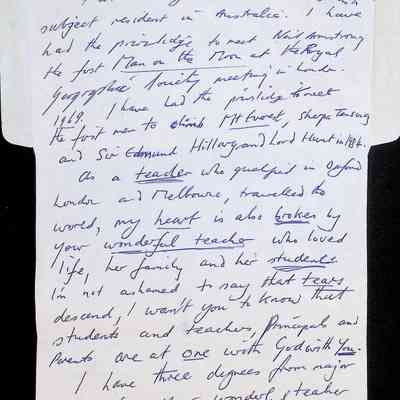 subject resident in Australia. I have
had the priviledge to meet Neil Armstrong
the first Man on the Moon at the Royal
Geographical Society meeting in London.
1969. I have had the priviledge to meet
the first men to climb Mt Everest, Sherpa Tensing
and Sir Edmund Hillary and Lord Hunt in
As a teacher who qualified in Oxford
London and Melbourne, travelled the
world, my heart is also broken by
your wonderful teacher who loved
life, her family and her students
I'm not ashamed to say that tears
descend, I want you to know that
students and teachers, Principals and
Parents are at one with God with You.
I have three degrees from major